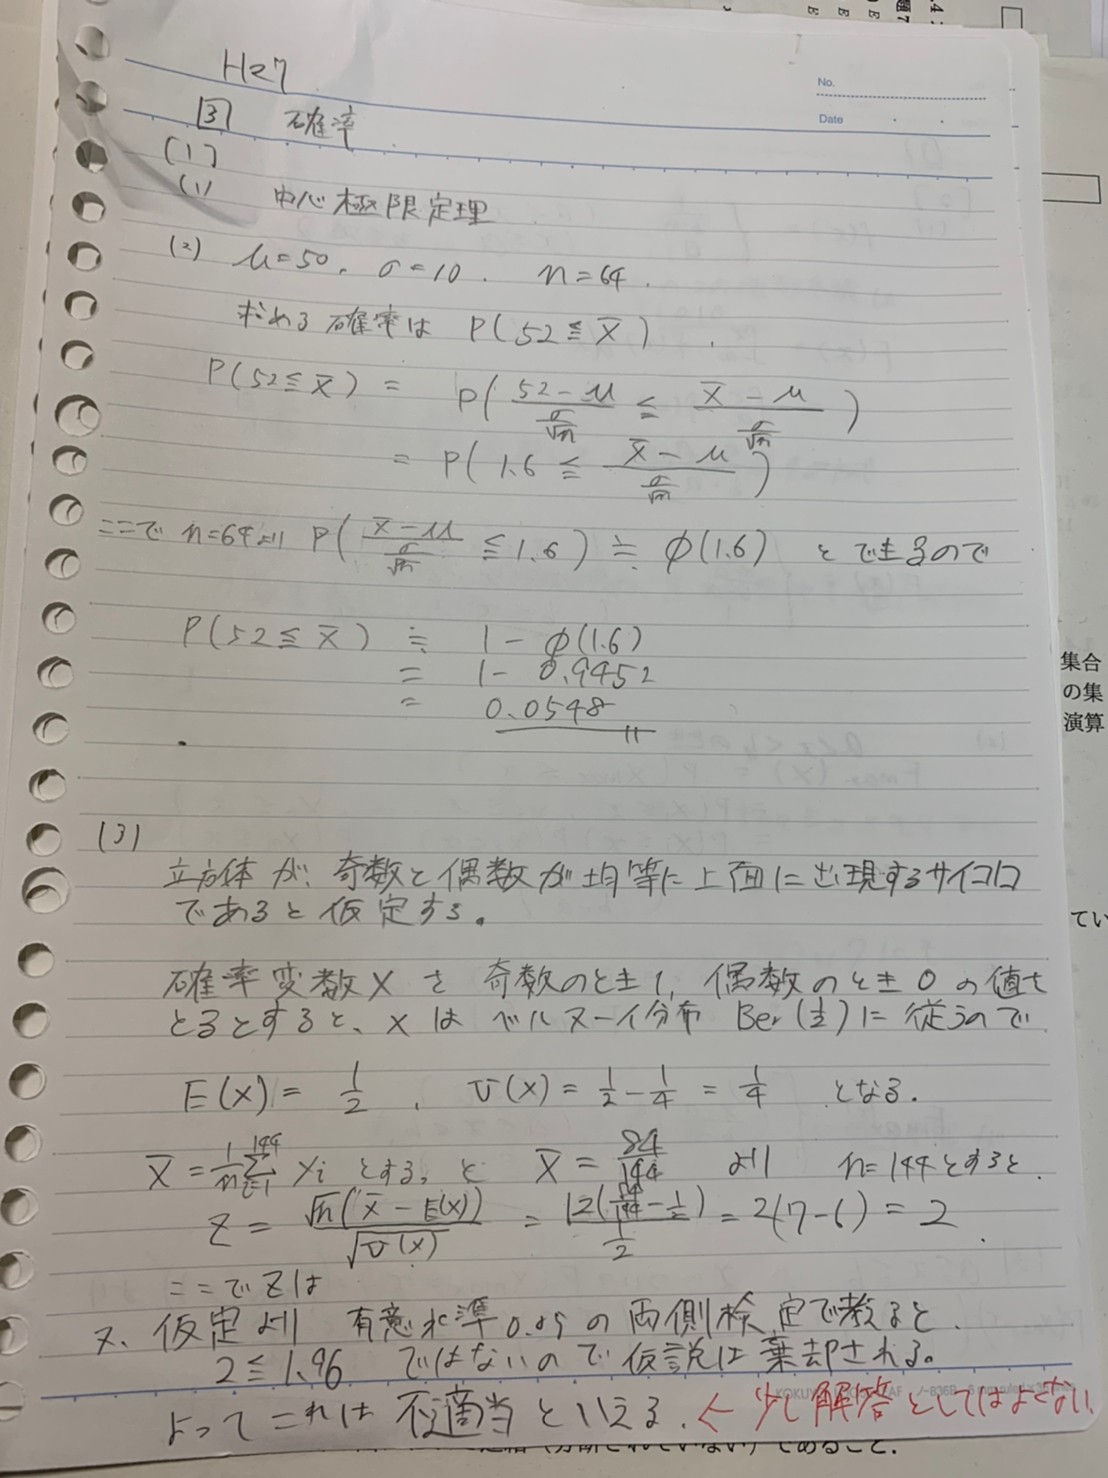 H27
No.
3 確率
Date
(1)
(1) 中心極限定理
(2) μ=50, σ=10. n=64.
求める確率は P(52≦X̄).
P(52≦X̄) = P((52-μ)/(σ/√n) ≦ (X̄-μ)/(σ/√n))
= P(1.6 ≦ (X̄-μ)/(σ/√n))
ここで n=64より P((X̄-μ)/(σ/√n) ≦ 1.6) ≒ φ(1.6) とできるので
P(52≦X̄) ≒ 1-φ(1.6)
= 1-0.9452
= 0.0548
(3)
立方体が、奇数と偶数が均等に上面に出現するサイコロ
であると仮定する。
確率変数Xを奇数のとき1, 偶数のとき0の値を
とるとすると、Xはベルヌーイ分布 Ber(1/2)に従うので
E(X) = 1/2, V(X) = 1/2 - 1/4 = 1/4 となる.
X̄ = 1/n Σ_{i=1}^{144} Xi とすると X̄ = 84/144 より n=144とすると
Z = √n(X̄-E(X))/√V(X) = 12(84/144 - 1/2)/(1/2) = 2(7-6) = 2.
ここでZは
又、仮定より 有意水準0.05の両側検定で教ると、
2≦1.96 ではないので仮説は棄却される。
よってこれは不適当といえる. ← 少し解答としてはよくない
集合
の集
演算
てい
であること.